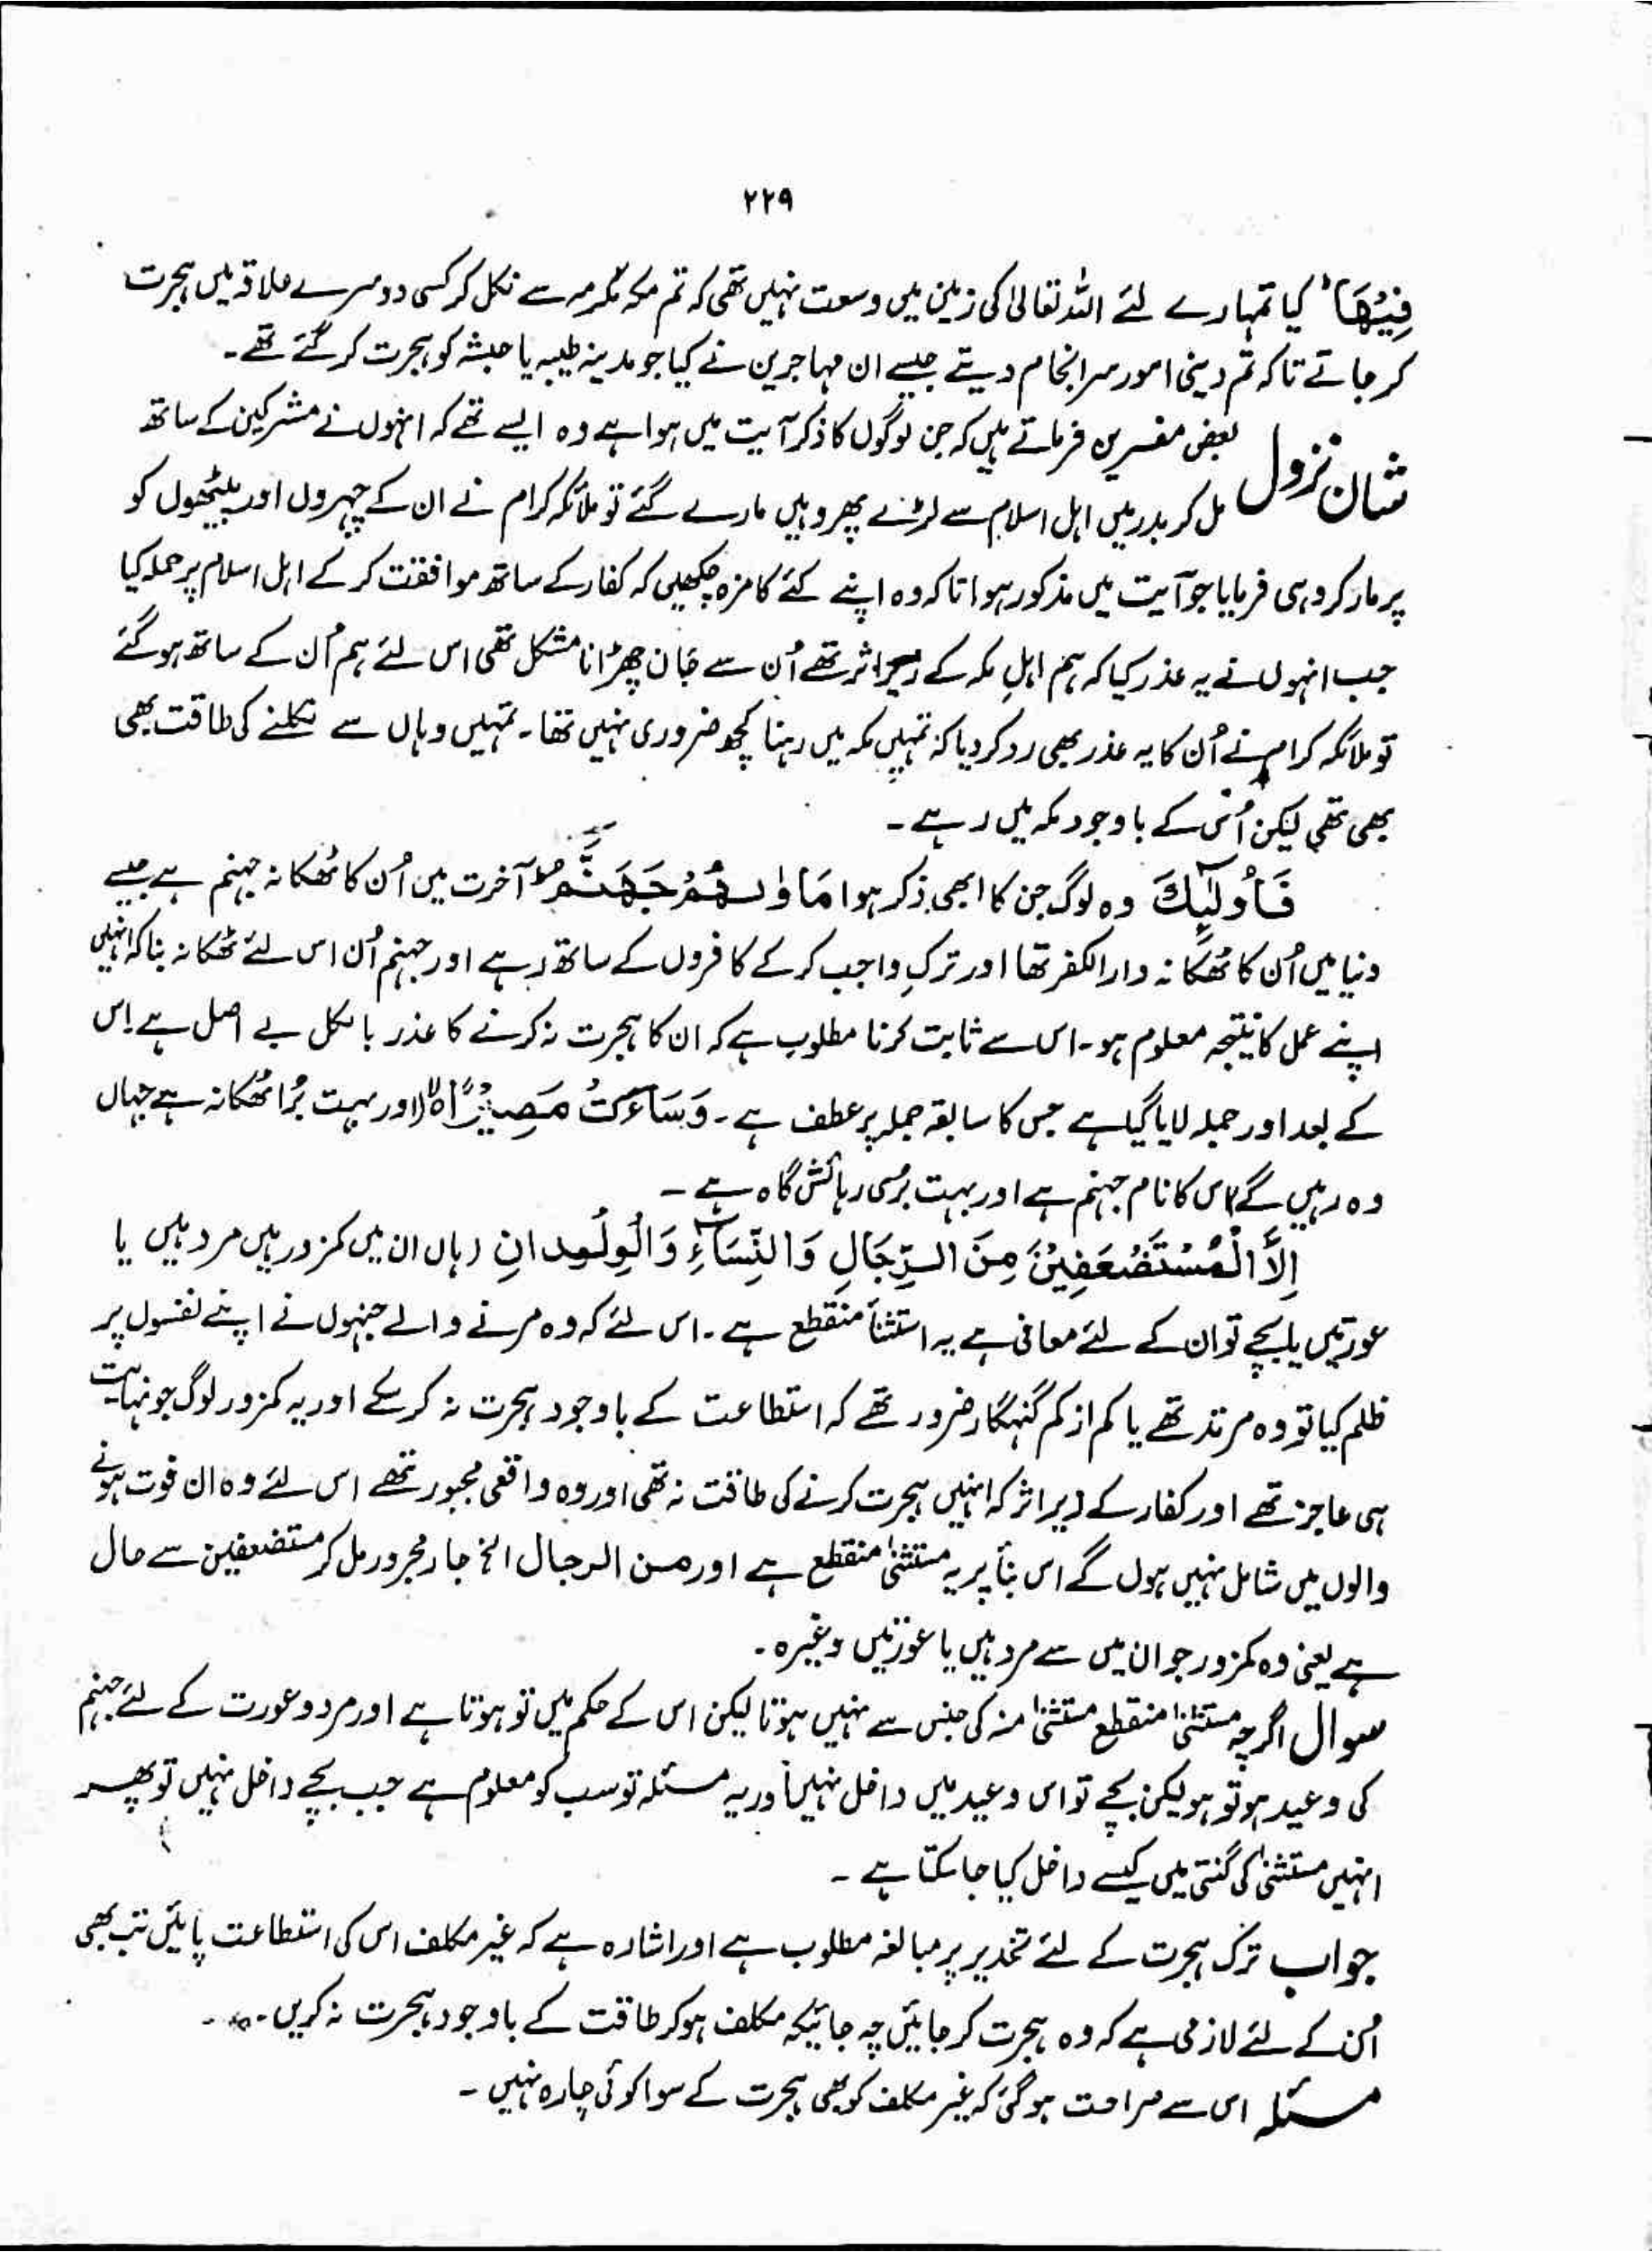 ۲۲۹
فِیْهَا ؕ کیا تمہارے لئے اللہ تعالیٰ کی زمین میں وسعت نہیں تھی کہ تم مکہ مکرمہ سے نکل کر کسی دوسرے علاقہ میں ہجرت
کر جاتے تاکہ تم دینی امور سر انجام دیتے جیسے ان مہاجرین نے کیا جو مدینہ طیبہ یا حبشہ کو ہجرت کر گئے تھے۔
شان نزول بعض مفسرین فرماتے ہیں کہ جن لوگوں کا ذکر آیت میں ہوا ہے وہ ایسے تھے کہ انہوں نے مشرکین کے ساتھ
مل کر بدر میں اہل اسلام سے لڑنے پھر وہیں مارے گئے تو ملائکہ کرام نے ان کے چہروں اور پیٹھوں کو
پر مار کر وہی فرمایا جو آیت میں مذکور ہوا تاکہ وہ اپنے کئے کا مزہ چکھیں کہ کفار کے ساتھ موافقت کر کے اہل اسلام پر حملہ کیا
جب انہوں نے یہ عذر کیا کہ ہم اہلِ مکہ کے زیر اثر تھے اُن سے جان چھڑانا مشکل تھی اس لئے ہم اُن کے ساتھ ہو گئے
تو ملائکہ کرام نے اُن کا یہ عذر بھی رد کر دیا کہ تمہیں مکہ میں رہنا کچھ ضروری نہیں تھا۔ تمہیں وہاں سے نکلنے کی طاقت بھی
بھی تھی لیکن اُس کے باوجود مکہ میں رہے۔
فَاُولٰٓىِٕكَ وہ لوگ جن کا ابھی ذکر ہوا مَاْوٰىهُمْ جَهَنَّمُ ؕ آخرت میں اُن کا ٹھکانہ جہنم ہے جیسے
دنیا میں اُن کا ٹھکانہ دارالکفر تھا اور ترکِ واجب کر کے کافروں کے ساتھ رہے اور جہنم اُن اس لئے ٹھکانہ بنا کہ انہیں
اپنے عمل کا نتیجہ معلوم ہو۔ اس سے ثابت کرنا مطلوب ہے کہ ان کا ہجرت نہ کرنے کا عذر بالکل بے اصل ہے اس
کے بعد اور جملہ لایا گیا ہے جس کا سابقہ جملہ پر عطف ہے۔ وَسَآءَتْ مَصِیْرًا ۙ اور بہت بُرا ٹھکانہ ہے جہاں
وہ رہیں گے اس کا نام جہنم ہے اور بہت بُری رہائش گاہ ہے۔
اِلَّا الْمُسْتَضْعَفِیْنَ مِنَ الرِّجَالِ وَالنِّسَآءِ وَالْوِلْدَانِ (ہاں ان میں کمزور ہیں مرد ہیں یا
عورتیں یا بچے تو ان کے لئے معافی ہے یہ استثناً منقطع ہے۔ اس لئے کہ وہ مرنے والے جنہوں نے اپنے نفسوں پر
ظلم کیا تو وہ مرتد تھے یا کم از کم گنہگار ضرور تھے کہ استطاعت کے باوجود ہجرت نہ کر سکے اور یہ کمزور لوگ جو نہایت
ہی عاجز تھے اور کفار کے زیر اثر کہ انہیں ہجرت کرنے کی طاقت نہ تھی اور وہ واقعی مجبور تھے اس لئے وہ ان فوت ہونے
والوں میں شامل نہیں ہوں گے اس بنأ پر یہ مستثنیٰ منقطع ہے اور من الرجال الخ جار مجرور مل کر مستضعفین سے حال
ہے یعنی وہ کمزور جو ان میں سے مرد ہیں یا عورتیں وغیرہ۔
سوال اگرچہ مستثنیٰ منقطع مستثنیٰ منہ کی جنس سے نہیں ہوتا لیکن اس کے حکم میں تو ہوتا ہے اور مرد و عورت کے لئے جہنم
کی وعید ہو تو ہو لیکن بچے تو اس وعید میں داخل نہیں اور یہ مسئلہ تو سب کو معلوم ہے جب بچے داخل نہیں تو پھر
انہیں مستثنیٰ کی گنتی میں کیسے داخل کیا جا سکتا ہے۔
جواب ترک ہجرت کے لئے تحذیر پر مبالغہ مطلوب ہے اور اشارہ ہے کہ غیر مکلف اس کی استطاعت پائیں تب بھی
اُن کے لئے لازمی ہے کہ وہ ہجرت کر جائیں چہ جائیکہ مکلف ہو کر طاقت کے باوجود ہجرت نہ کریں۔
مسئلہ اس سے صراحت ہو گئی کہ غیر مکلف کو بھی ہجرت کے سوا کوئی چارہ نہیں۔